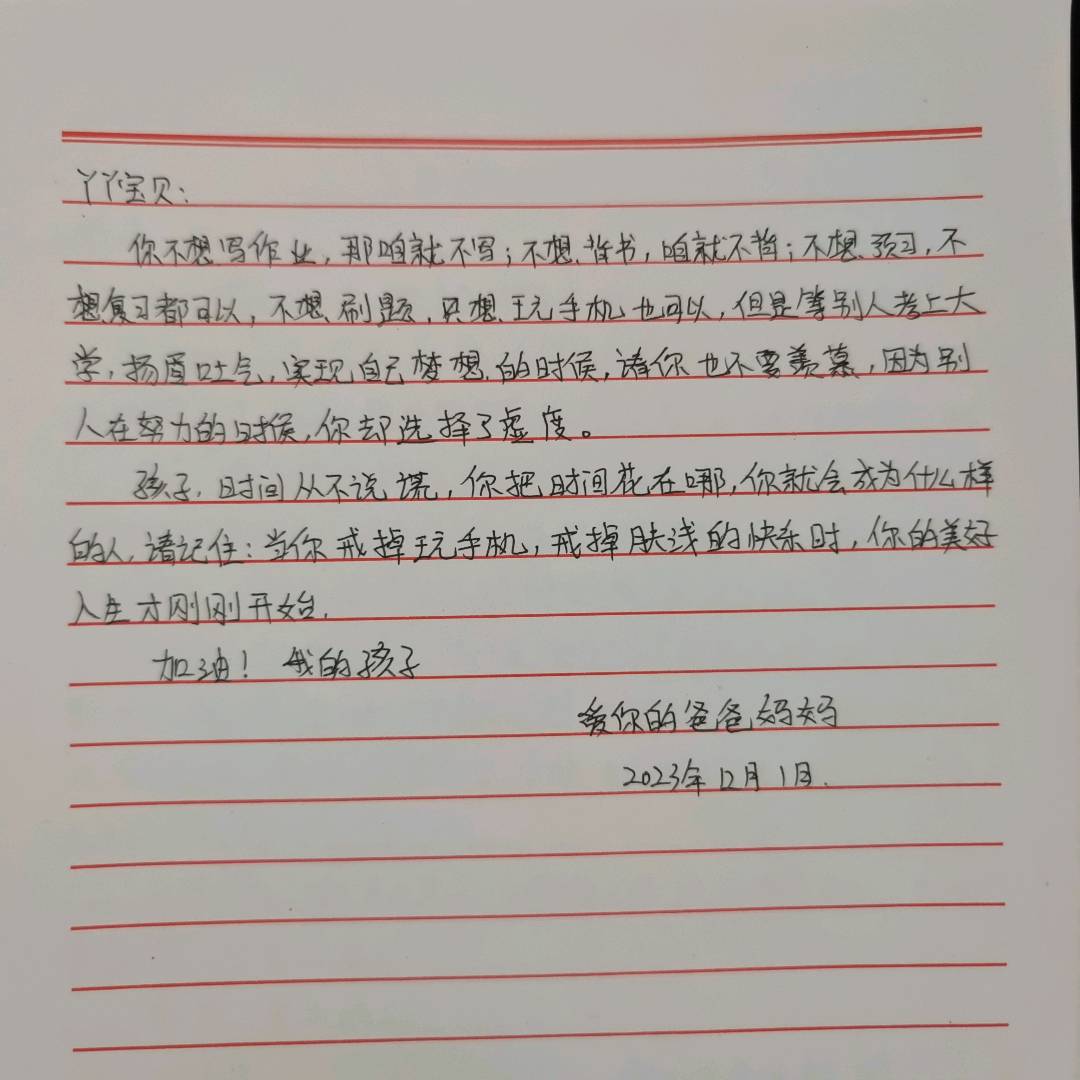 丫丫宝贝：
你不想写作业，那咱就不写；不想背书，咱就不背；不想预习，不
想复习都可以，不想刷题，只想玩手机也可以，但是等别人考上大
学，扬眉吐气，实现自己梦想的时候，请你也不要羡慕，因为别
人在努力的时候，你却选择了虚度。
孩子，时间从不说谎，你把时间花在哪，你就会成为什么样
的人，请记住：当你戒掉玩手机，戒掉肤浅的快乐时，你的美好
人生才刚刚开始．
加油！ 我的孩子
爱你的爸爸妈妈
2023年12月1日．